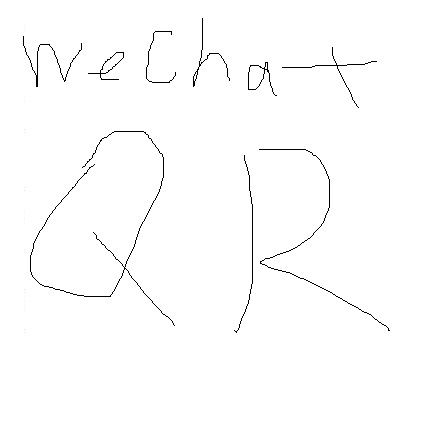 WeChat
QR